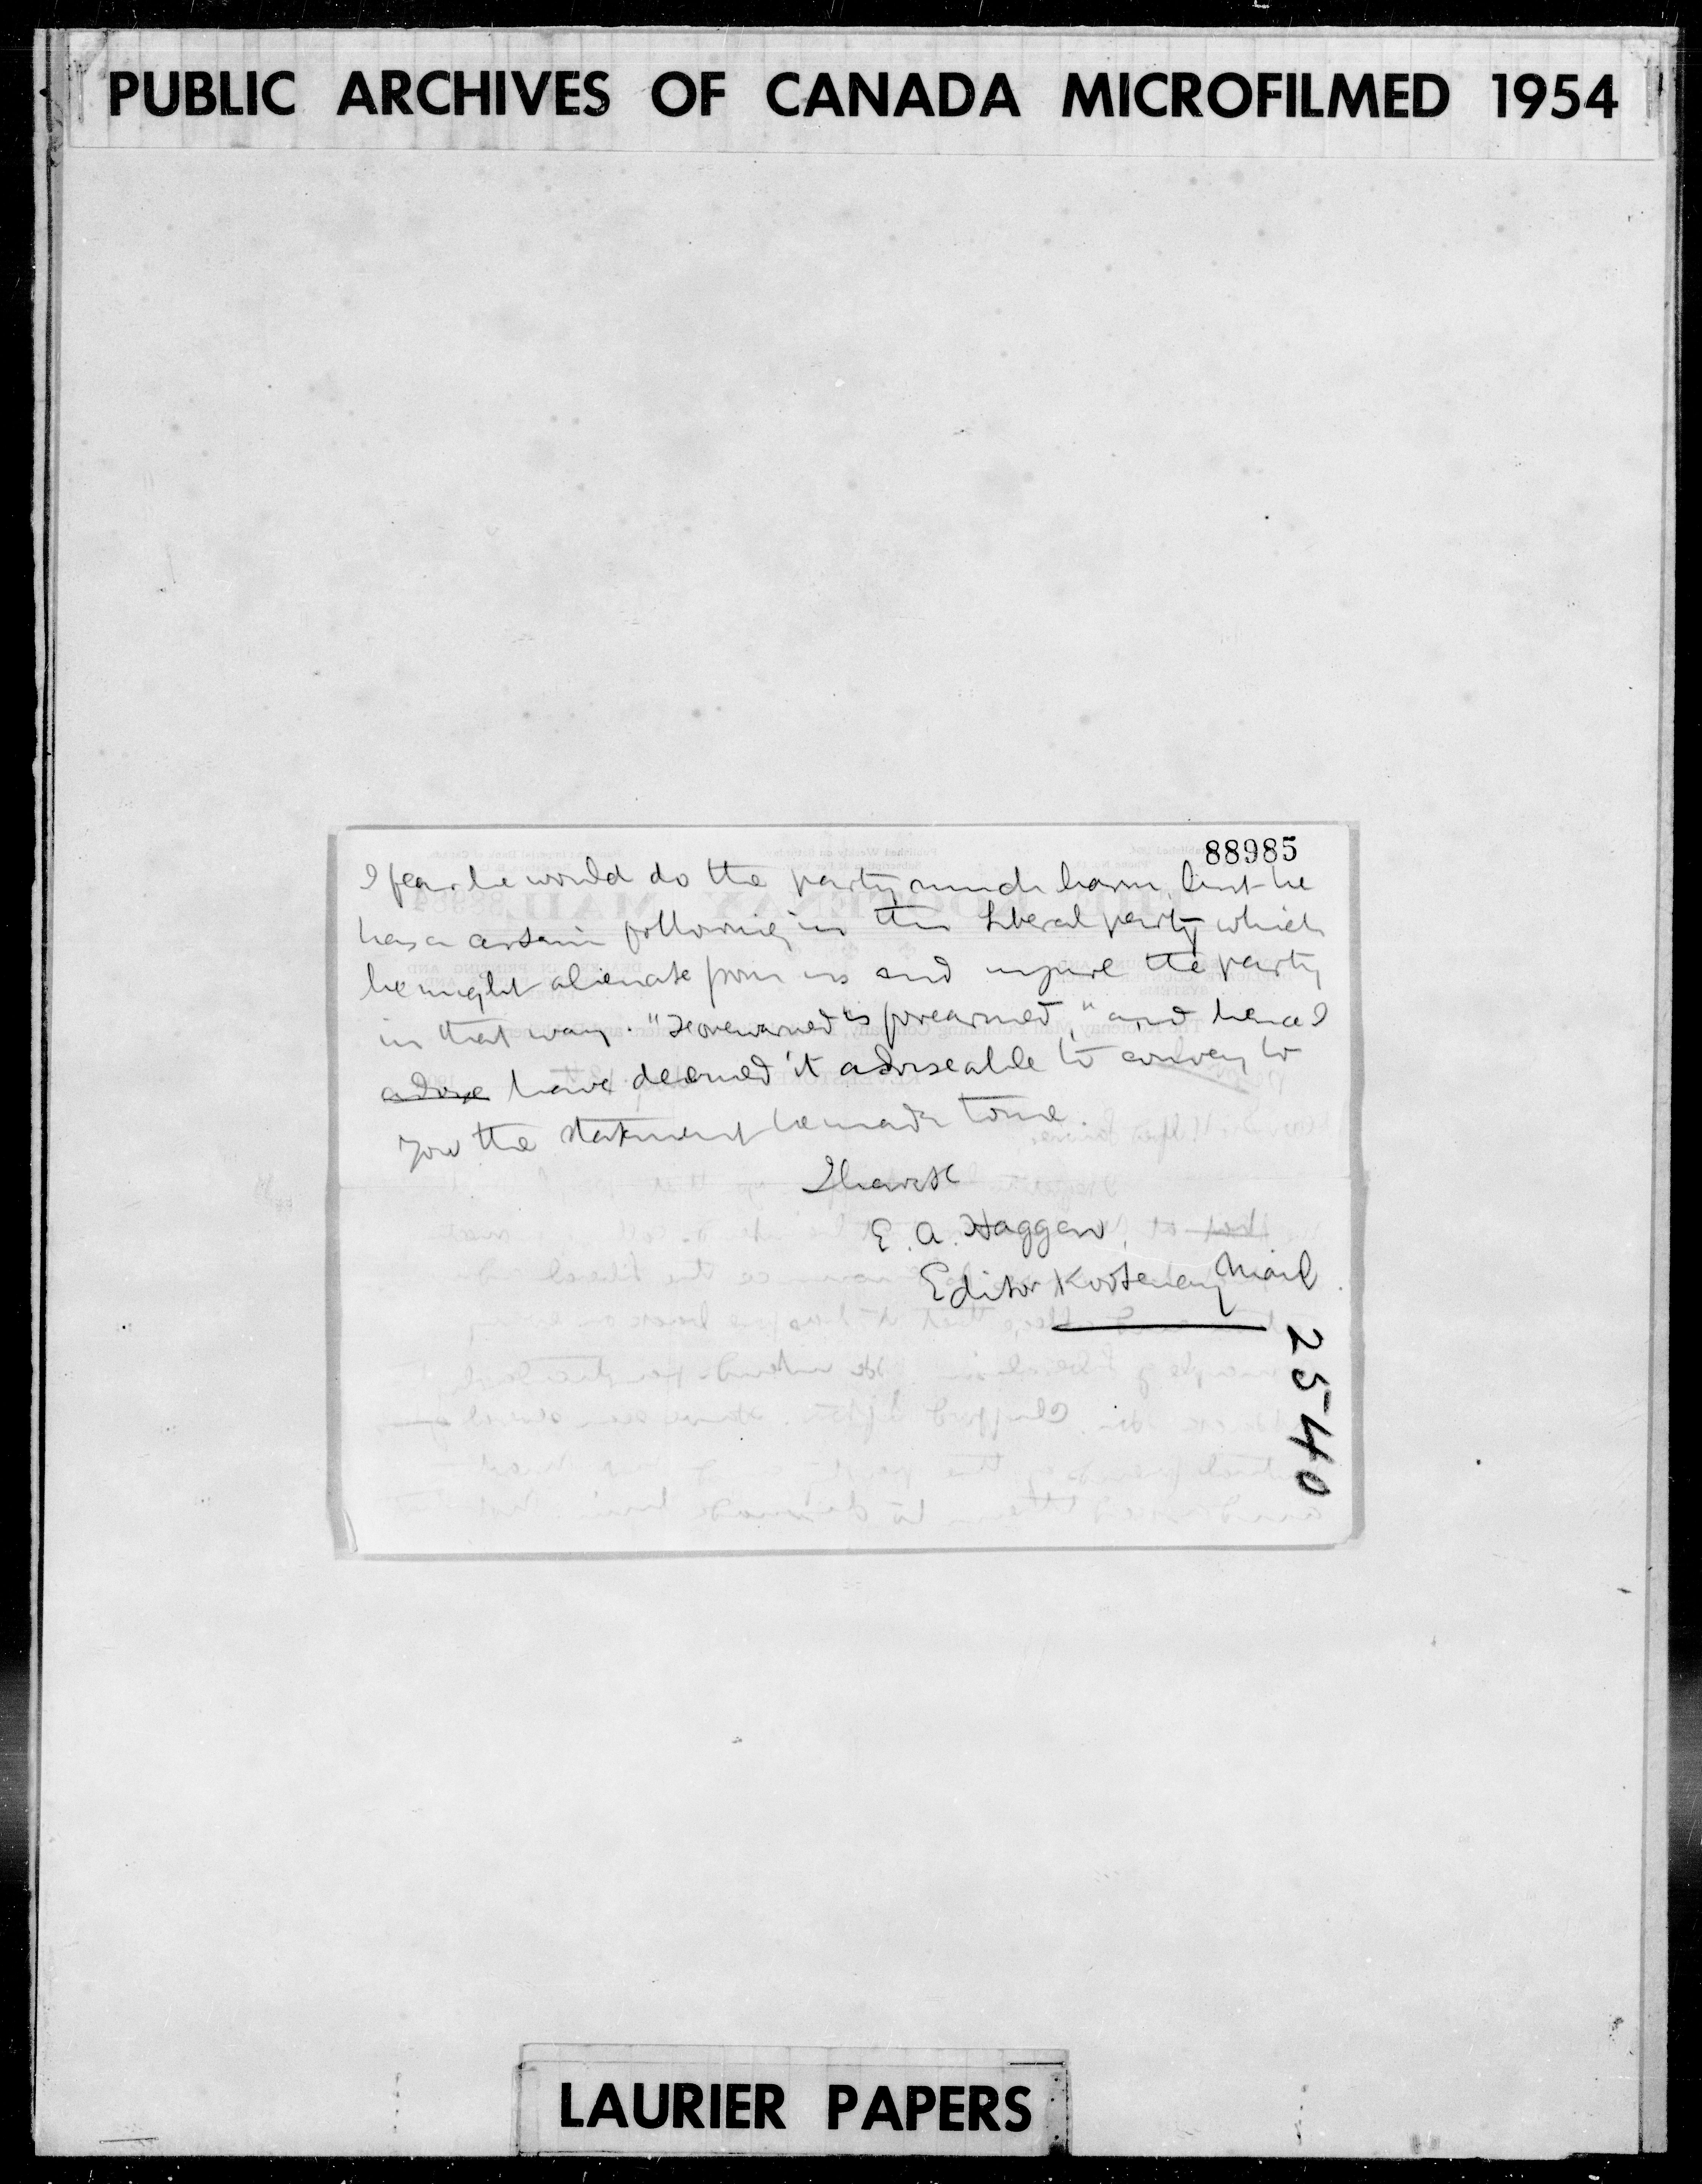 PUBLIC ARCHIVES OF CANADA MICROFILMED 1954
88985
I fear he would do the party much harm, but he
has a certain following in the Liberal party which
he might alienate from us and injure the party
in that way. "Forewarned is forearmed," and hence I
advise have deemed it adviseable to convey to
you the statement he made to me.
E. A. Haggen,
Editor Kootenay Mail
2540
LAURIER PAPERS